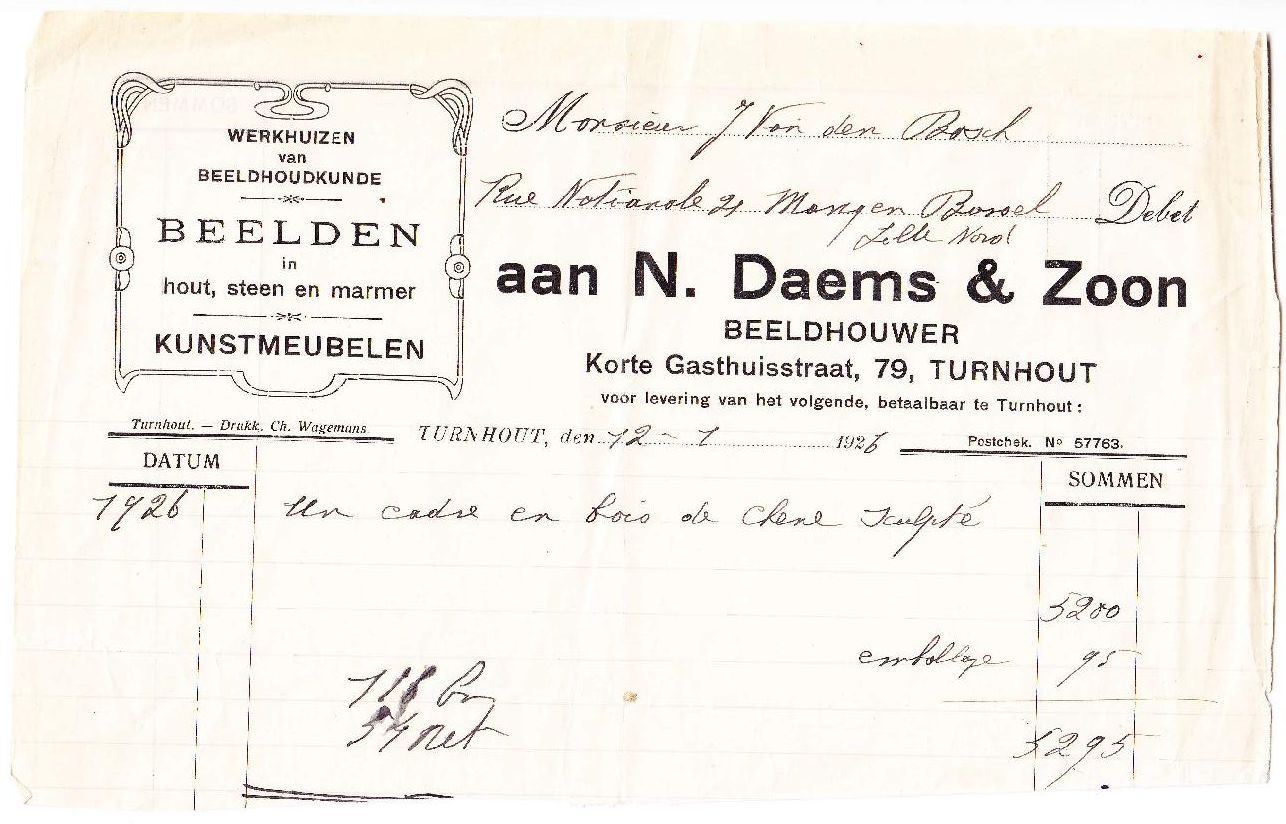 WERKHUIZEN
van
BEELDHOUDKUNDE
BEELDEN
in
hout, steen en marmer
KUNSTMEUBELEN
Monsieur J Van den Bosch
Rue Nationale 21 Debet
Lille Nord
aan N. Daems & Zoon
BEELDHOUWER
Korte Gasthuisstraat, 79, TURNHOUT
voor levering van het volgende, betaalbaar te Turnhout :
Turnhout. — Drukk. Ch. Wagemans
TURNHOUT, den 12 - 1 1926
Postchek. No 57763.
DATUM
SOMMEN
1926 Un cadre en bois de chene sculpté
5200
emballage 95
54 net
5295